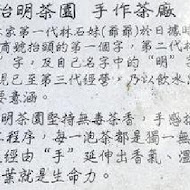 冶明茶園 手作茶廠
家第一代林石妹(爺爺)於日據時
商號抬頭的第一個字,第二代林
字,及自己名字中的"明"字
現已至第三代經營,乃以飲水
意涵。
明茶園堅持無毒茶香,手感
工程序,每一泡茶都是獨一無
經由"手"延伸出香氣、
葉就是生命力。